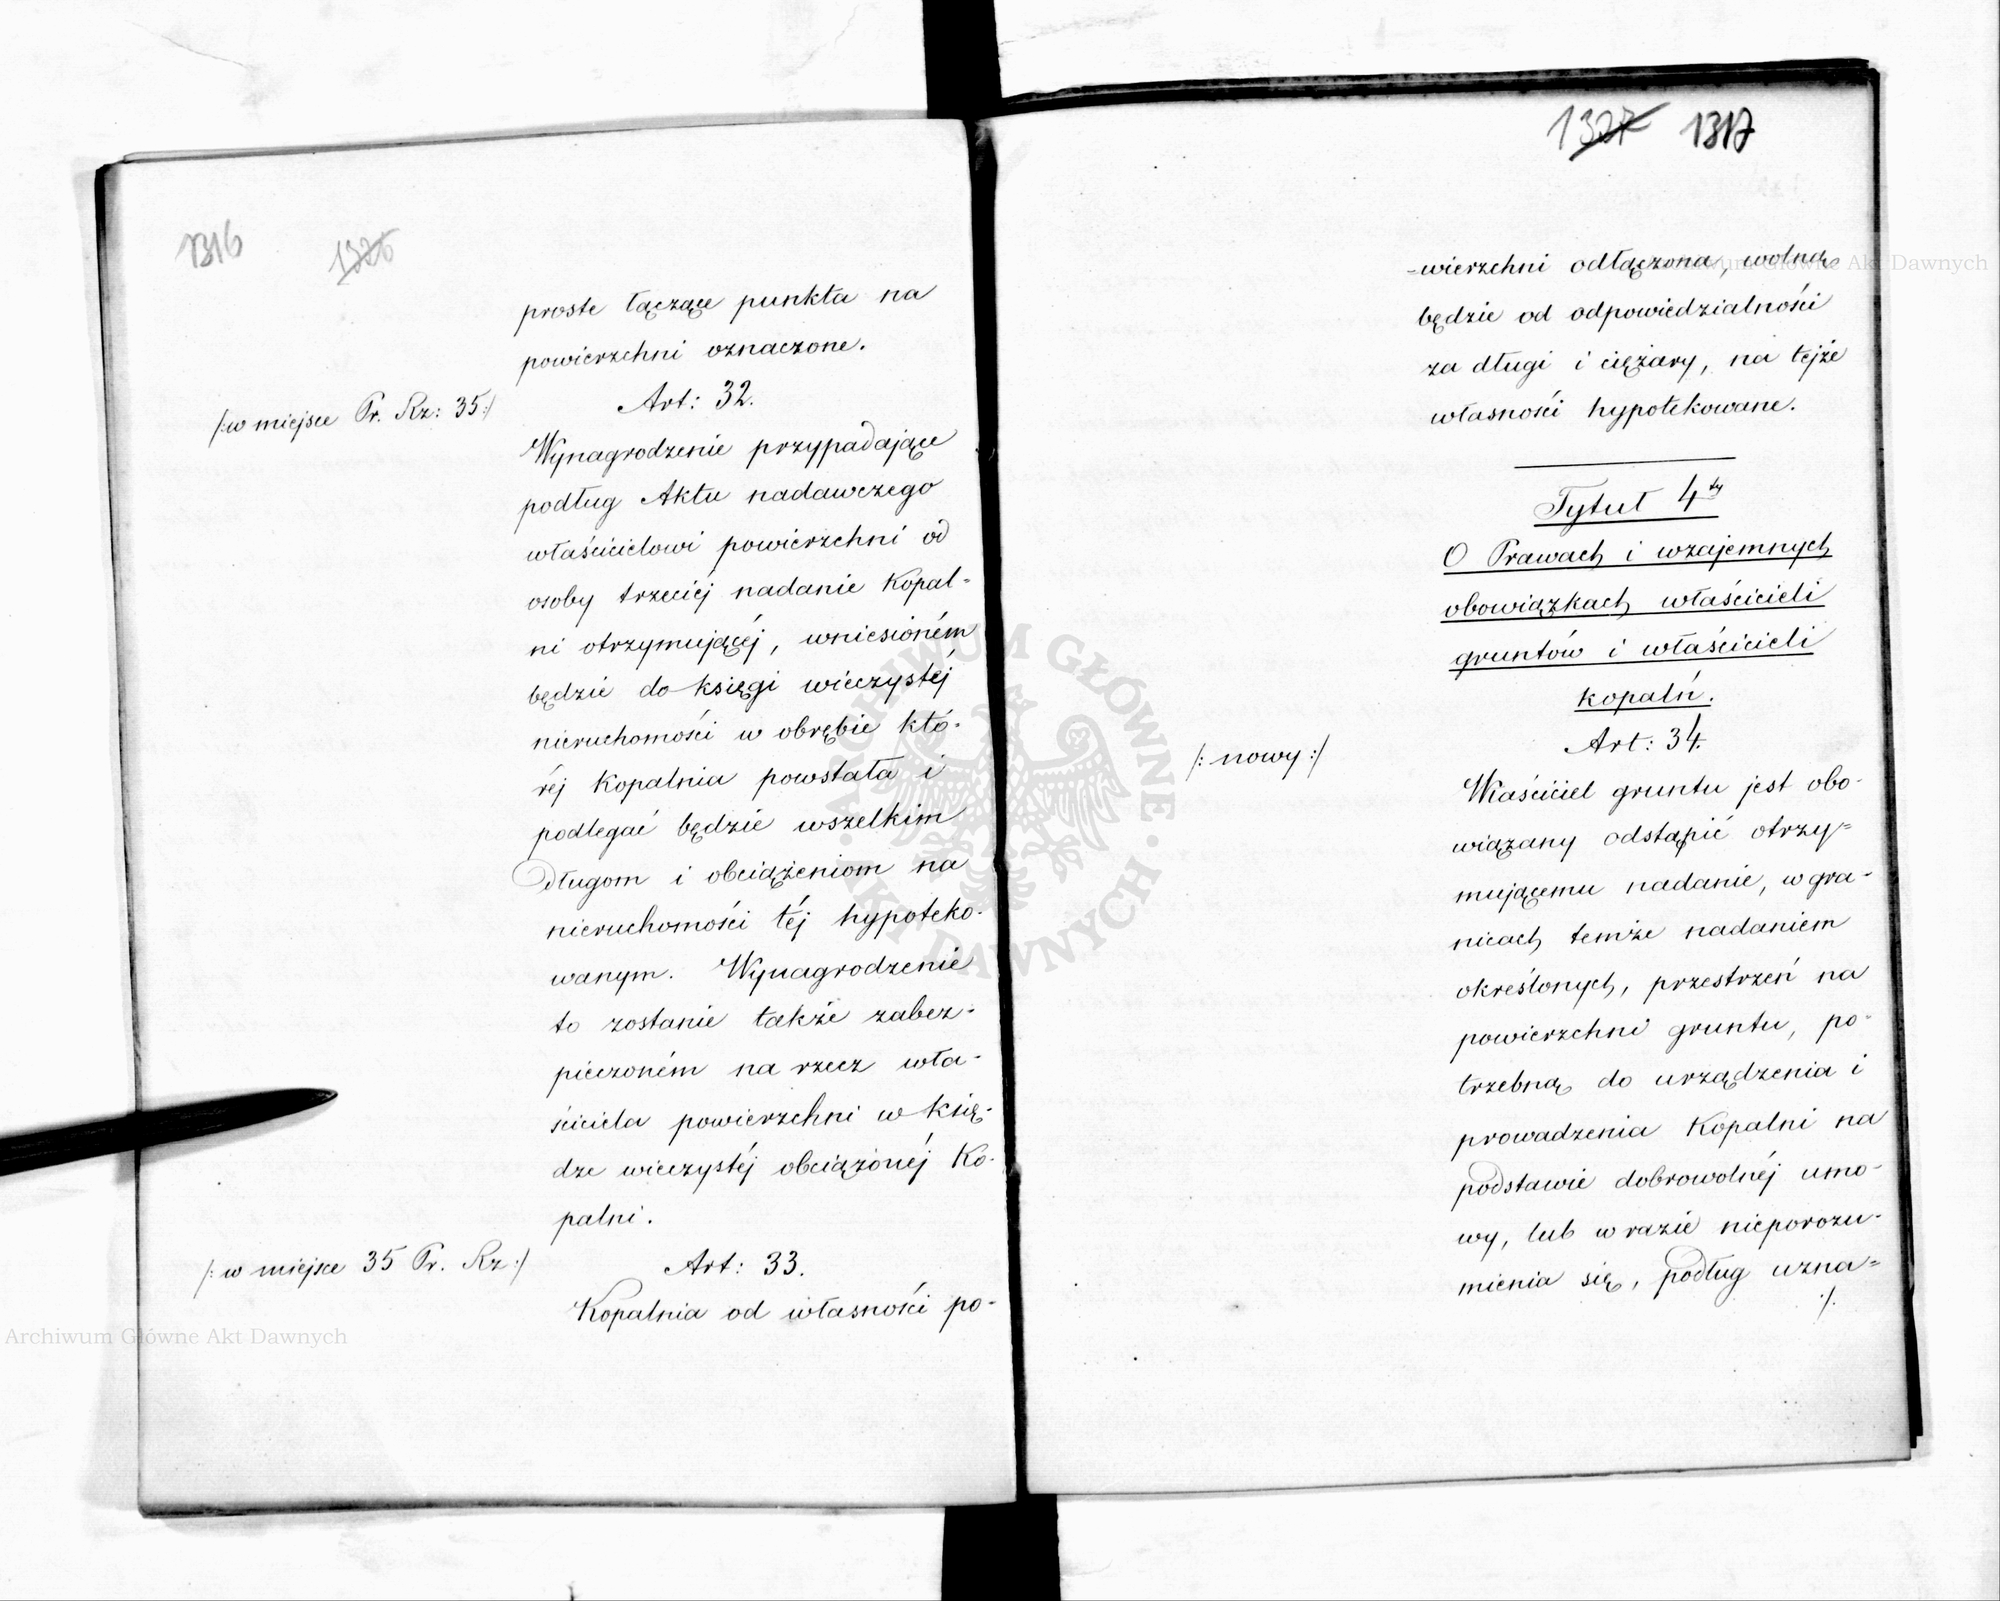 1316 1326
proste łączące punkta na
powierzchni oznaczone.
/:w miejsce Pr. Rz: 35:/
Art: 32.
Wynagrodzenie przypadające
podług Aktu nadawczego
właścicielowi powierzchni od
osoby trzeciéj nadanie Kopal=
ni otrzymującéj, wniesioném
będzie do księgi wieczystéj
nieruchomości w obrębie któ-
réj Kopalnia powstała i
podlegać będzie wszelkim
długom i obciążeniom na
nieruchomości téj hypoteko-
wanym. Wynagrodzenie
to zostanie także zabez-
pieczoném na rzecz wła-
ściciela powierzchni w księ-
dze wieczystéj obciążonéj Ko-
palni.
/: w miejsce 35 Pr. Rz:/
Art: 33.
Kopalnia od własności po-
Archiwum Główne Akt Dawnych
1327 1317
-wierzchni odłączona, wolną
Archiwum Główne Akt Dawnych
będzie od odpowiedzialności
za długi i ciężary, na tejże
własności hypotekowane.
Tytuł 4ty
O Prawach i wzajemnych
obowiązkach właścicieli
gruntów i właścicieli
kopalń.
Art: 34.
/: nowy :/
Właściciel gruntu jest obo-
wiązany odstąpić otrzy=
mującemu nadanie, w gra-
nicach temże nadaniem
określonych, przestrzeń na
powierzchni gruntu, po-
trzebną do urządzenia i
prowadzenia Kopalni na
podstawie dobrowolnéj umo-
wy, lub w razie nieporozu-
mienia się, podług uzna=
./.
ARCHIWUM GŁÓWNE
AKT DAWNYCH